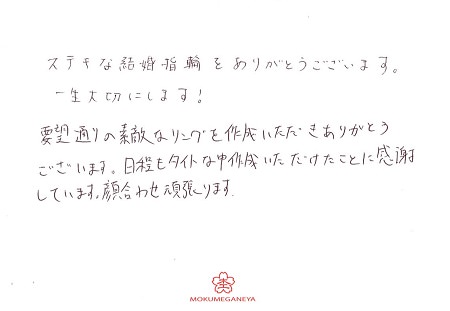 ステキな結婚指輪をありがとうございます。
一生大切にします!
要望通りの素敵なリングを作成いただきありがとう
ございます。日程もタイトな中作成いただけたことに感謝
しています。顔合わせ頑張ります。
MOKUMEGANEYA